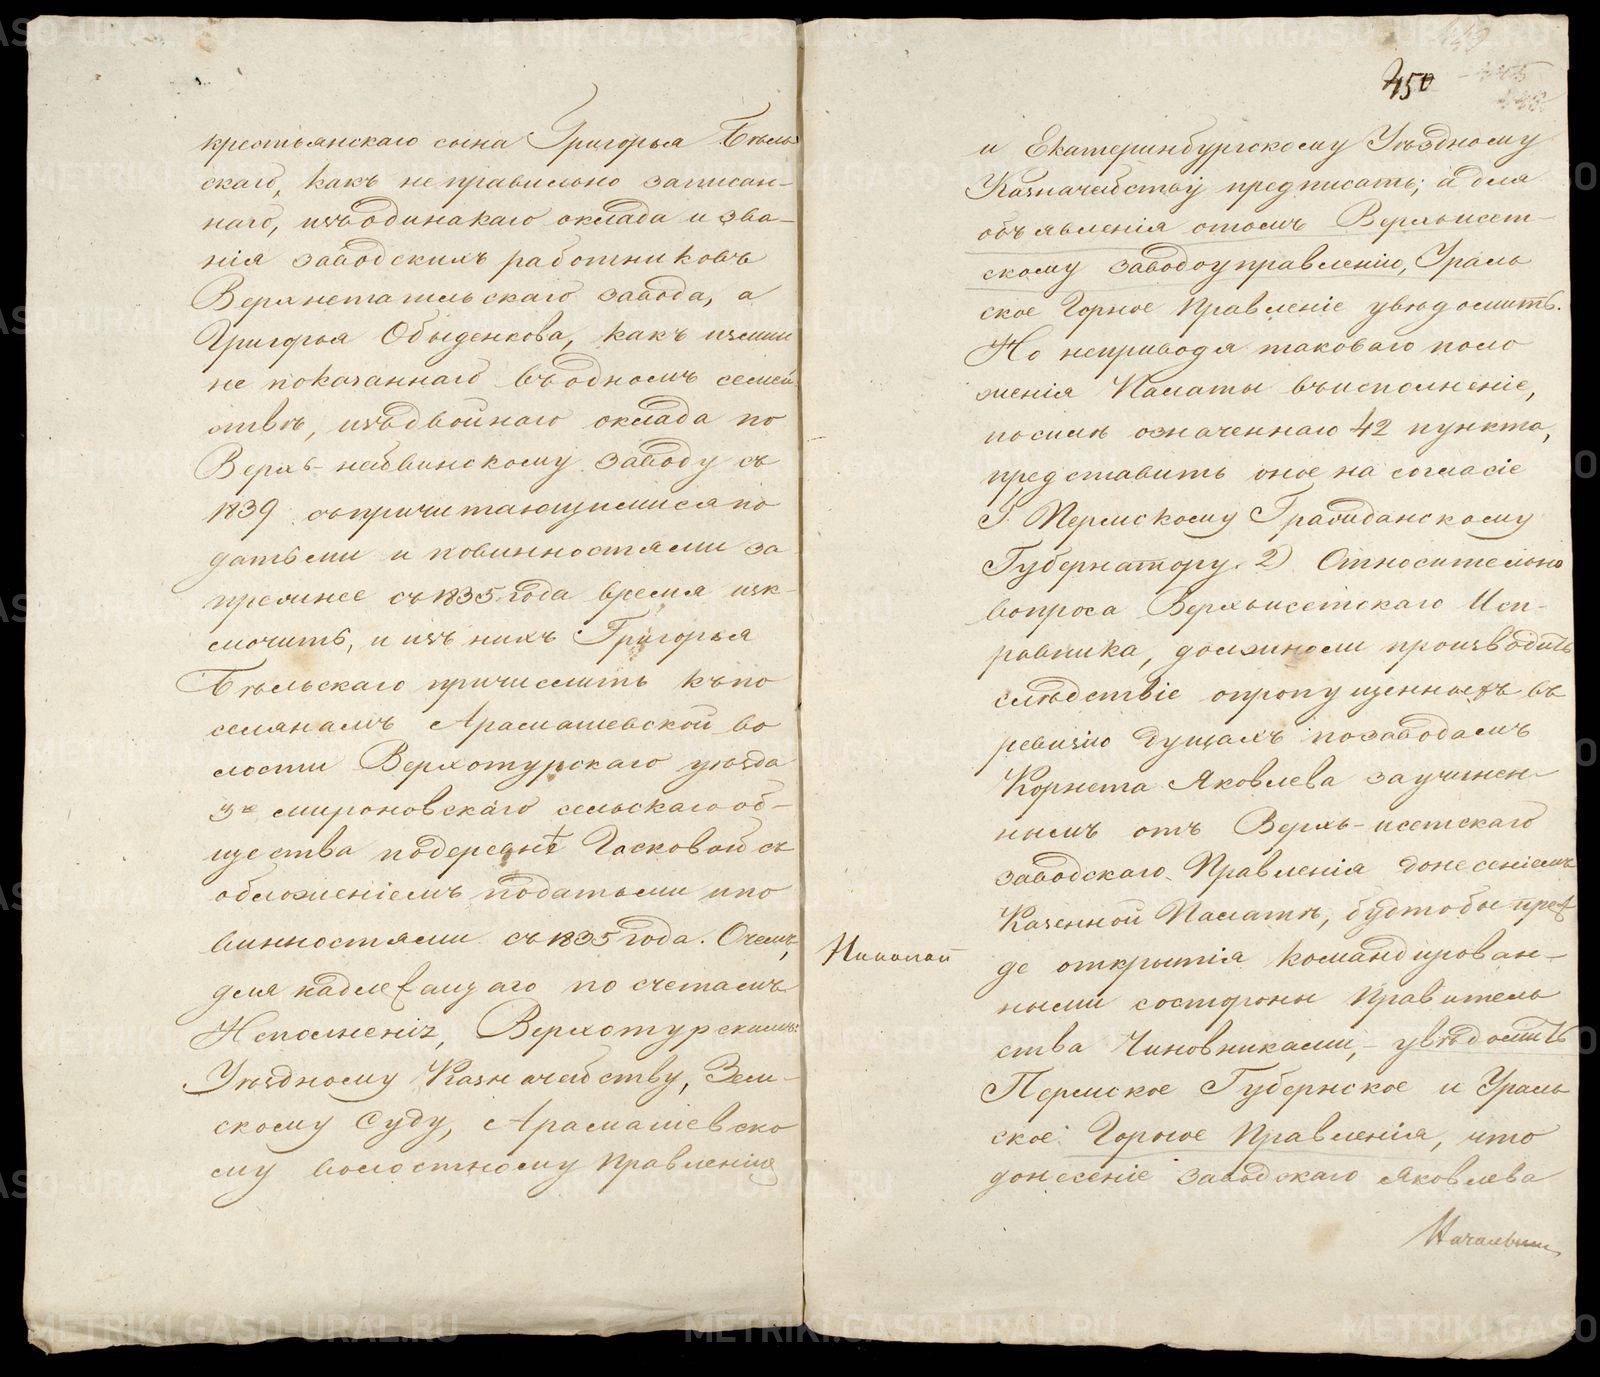 крестьянскаго сына Григорья Бѣль
скаго, какъ неправильно записан-
наго, изъ одинакаго оклада и зва-
нія заводскихъ работниковъ
Верхнетагильскаго завода, а
Григорья Обыденкова, какъ излиш
не показаннаго въ одномъ семей
ствѣ, изъ двойнаго оклада по
Верхъ-нейвинскому заводу съ
1839 съ причитающимися по
датьми и повинностями за
прежнее съ 1835 года время изк-
лючить, и изъ нихъ Григорья
Бѣльскаго причислить къ по
селянамъ Арамашевской во
лости Верхотурскаго уѣзда
3е мироновскаго сельскаго об-
щества по деревнѣ Гасковой съ
обложеніемъ податьми и по
винностями съ 1835 года. О чемъ,
для надлежащаго по счетамъ
Исполненія, Верхотурскимъ:
Уѣздному Казначейству, Зем-
скому Суду, Арамашевско
му волостному Правленію
450
и Екатеринбургскому Уѣздному
Казначейству предписать; а для
объявленія о томъ Верхъисет-
скому заводоуправленію, Ураль
ское Горное Правленіе увѣдомить.
Но неприводя таковаго поло
женія Палаты въ исполненіе,
по силѣ означеннаго 42 пункта,
представить оное на согласіе
Г. Пермскому Гражданскому
Губернатору. 2) Относительно
вопроса Верхъисетскаго Исп-
равника, должноли производить
слѣдствіе о пропущенныхъ въ
ревизію душахъ по заводамъ
Корнета Яковлева за учинен-
нымъ отъ Верхъ-исетскаго
заводскаго Правленія донесеніемъ
Казенной Палатѣ, будтобы преж
де открытія командирован-
ными со стороны Правитель
ства Чиновниками, - увѣдомить
Пермское Губернское и Ураль
ское Горное Правленія, что
донесеніе заводскаго Яковлева
Николай